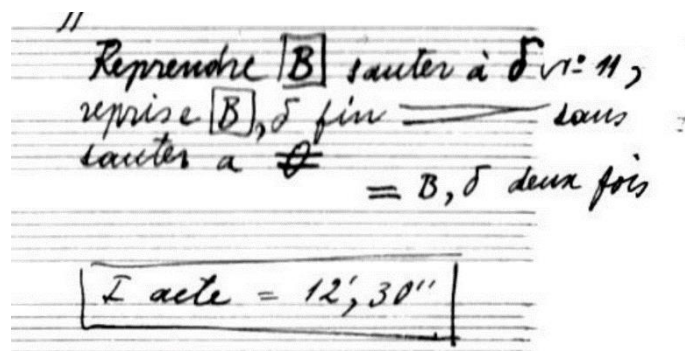 11
Reprendre B sauter à δ nº 11,
reprise B, δ fin sans
sauter a
= B, δ deux fois
I acte = 12', 30''